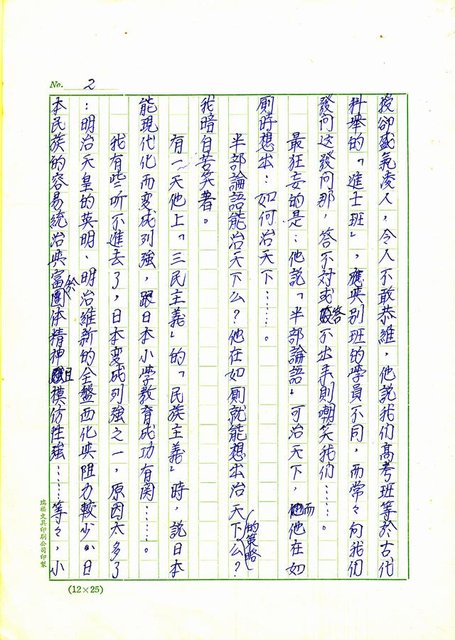 No. 2
授卻盛氣凌人，令人不敢恭維，他說我们高考班等於古代
科舉的「進士班」，應與别班的学員不同，而常々向我们
發问这發问那，答不对或答不出来則嘲笑我们……。
最狂妄的是：他說「半部論語」可治天下，而他在如
廁時想出：如何治天下……。
半部論語能治天下么？他在如廁就能想出治天下的策略么？
我暗自苦笑著。
有一天他上「三民主義」的「民族主義」時，說日本
能現代化而变成列強，跟日本小学教育成功有関……。
我有些听不進去了，日本变成列強之一，原因太多了
：明治天皇的英明、明治維新的全盤西化與阻力較少、日
本民族的容易統治與富余团体精神且模仿性強……等々，小
瑞梯文具印刷公司印製
(12×25)